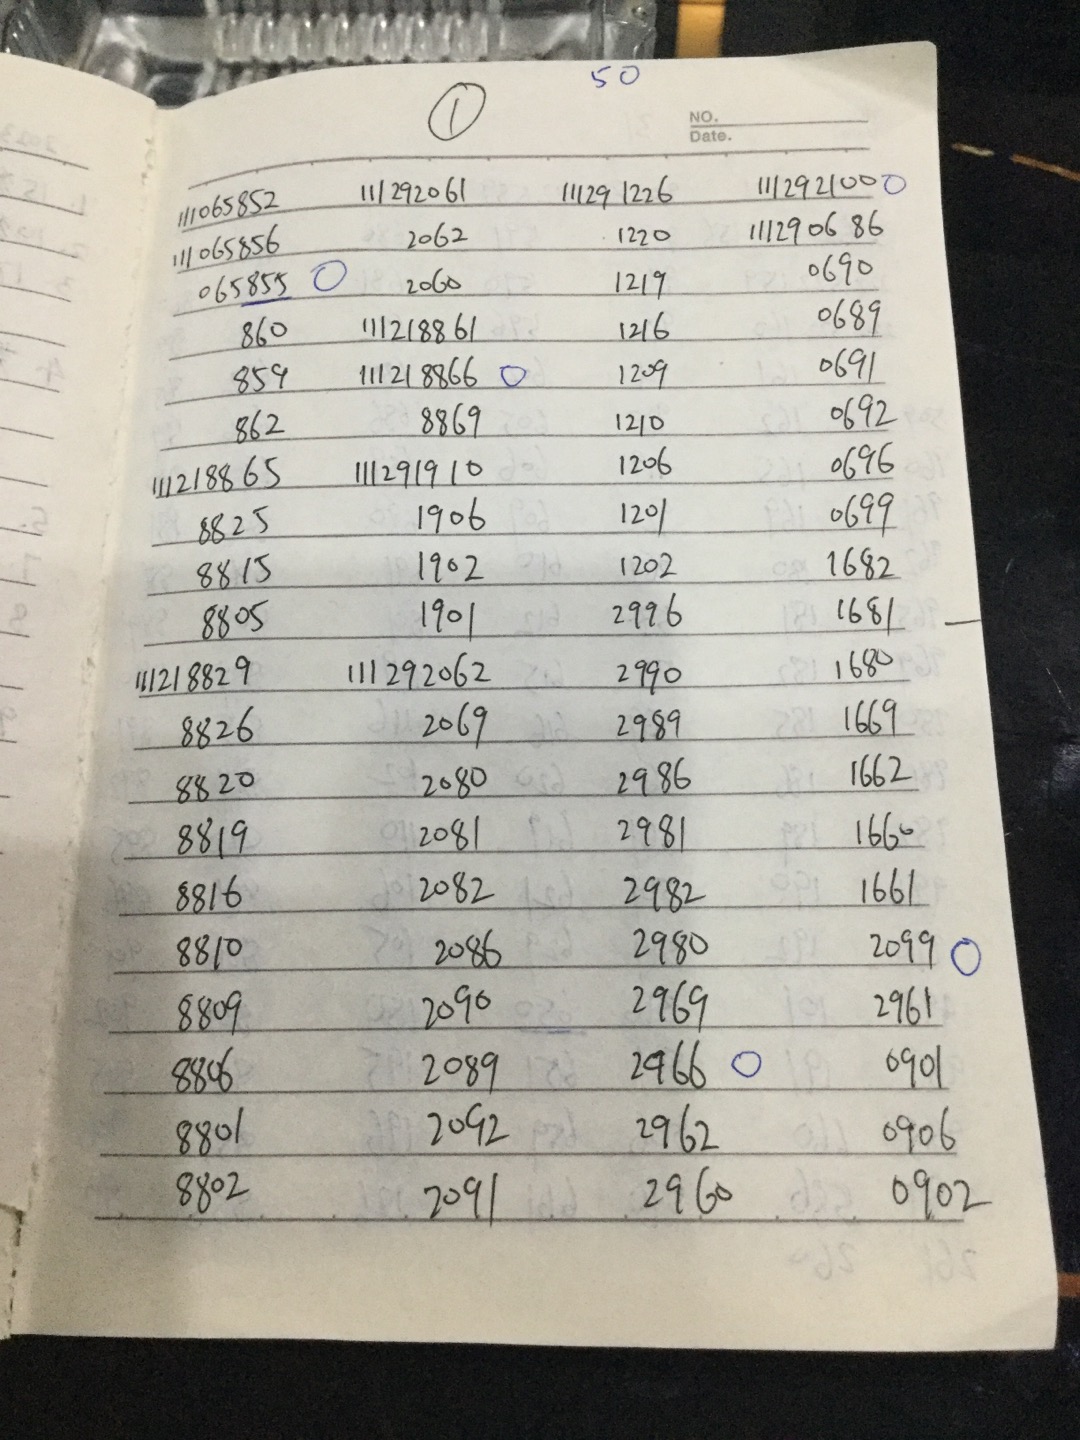 50
1
NO.
Date.
111065852 111292061 111291226 111292100
111065856 2062 1220 111290686
065855 2060 1219 0690
860 111218861 1216 0689
859 111218866 1209 0691
862 8869 1210 0692
111218865 111291910 1206 0696
8825 1906 1201 0699
8815 1902 1202 1682
8805 1901 2996 1681
111218829 111292062 2990 1680
8826 2069 2989 1669
8820 2080 2986 1662
8819 2081 2981 1660
8816 2082 2982 1661
8810 2086 2980 2099
8809 2090 2969 2961
8806 2089 2966 0901
8801 2092 2962 0906
8802 2091 2960 0902